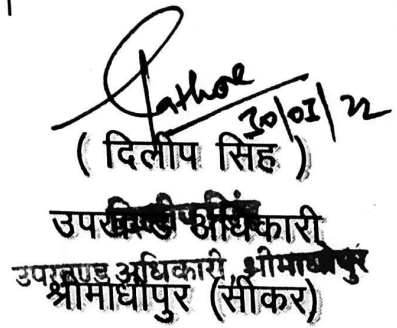 Rathore
30/01/22
( दिलीप सिंह )
उपखण्ड अधिकारी
उपखण्ड अधिकारी, श्रीमाधोपुर
श्रीमाधोपुर (सीकर)